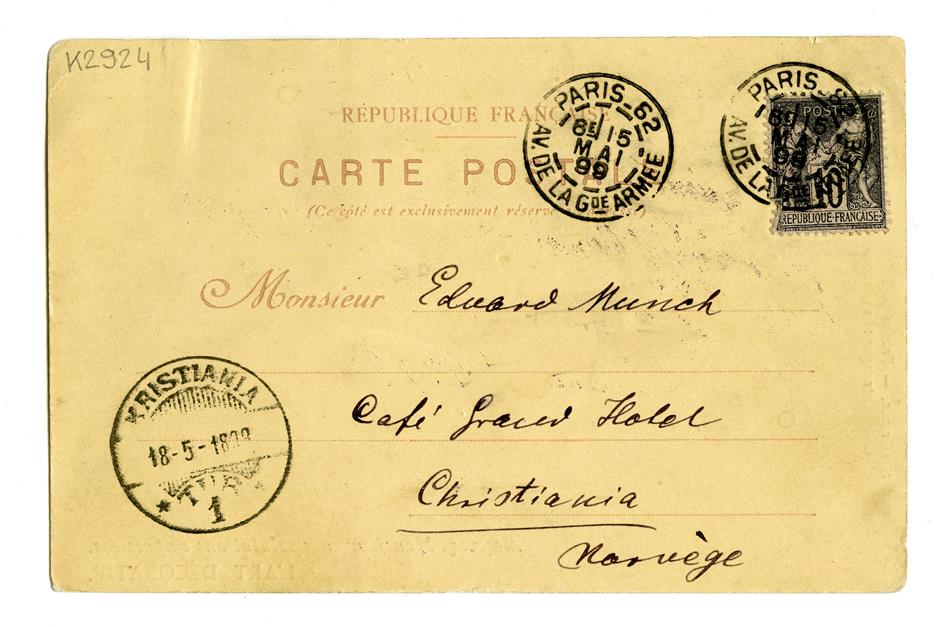 K2924
RÉPUBLIQUE FRANÇAISE
CARTE POSTALE
(Ce côté est exclusivement réservé
PARIS_62
6E/15
MAI
99
AV. DE LA GDE ARMÉE
PARIS
6E/15
MAI
99
AV. DE LA GDE ARMÉE
POSTES
10
REPUBLIQUE FRANÇAISE
Monsieur Edvard Munch
Café Grand Hotel
Christiania
Norvège
KRISTIANIA
18-5-1899
* TUR
1
L'ART DÉCORATIF